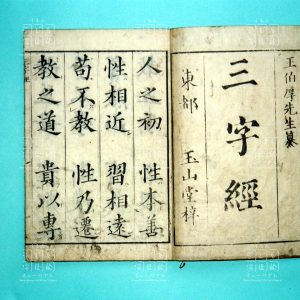 王伯厚先生纂
三字經
東都　玉山堂梓
人之初　性本善
性相近　習相遠
苟不教　性乃遷
教之道　貴以專